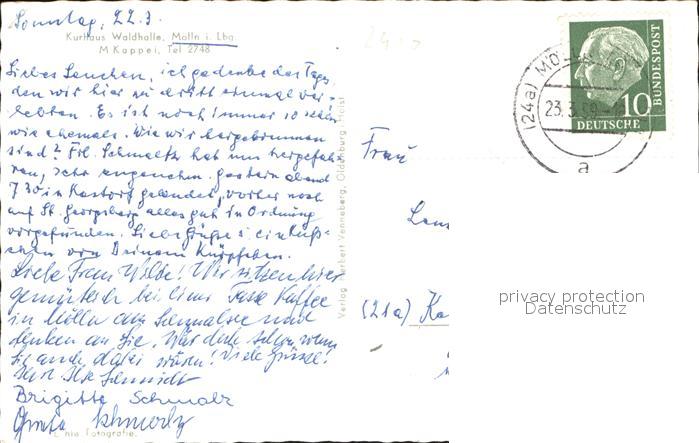 Sonntag, 22.3.
Kurhaus Waldhalle, Mölln i. Lbg.
M. Kappei, Tel. 2748
Liebes Lenchen, ich gedenke des Tages,
den wir hier zu dritt einmal ver-
lebten. Es ist noch immer so schön
wie ehemals. Wie wir hergekommen
sind? Frl. Schmaltz hat uns hergefah-
ren, sehr angenehm. Gestern abend
7.30 in Kastorf gelandet, vorher noch
auf St. Georgsberg alles gut in Ordnung
vorgefunden. Liebe Grüße
von Deinem
Liebe Frau Wilde! Wir sitzen hier
gemütlich bei einer Tasse Kaffee
in Mölln am Schmalsee und
denken an Sie. Wär doch schön, wenn
Sie auch dabei wären! Viele Grüsse!
Ihre Ilse Schmidt
Brigitte Schmalz
Verlag Herbert Venneberg, Oldenburg i. Holst
Fotografie.
(24a) MÖLLN
23.3.59
a
10
DEUTSCHE
BUNDESPOST
Frau
(21a) Ka
privacy protection
Datenschutz